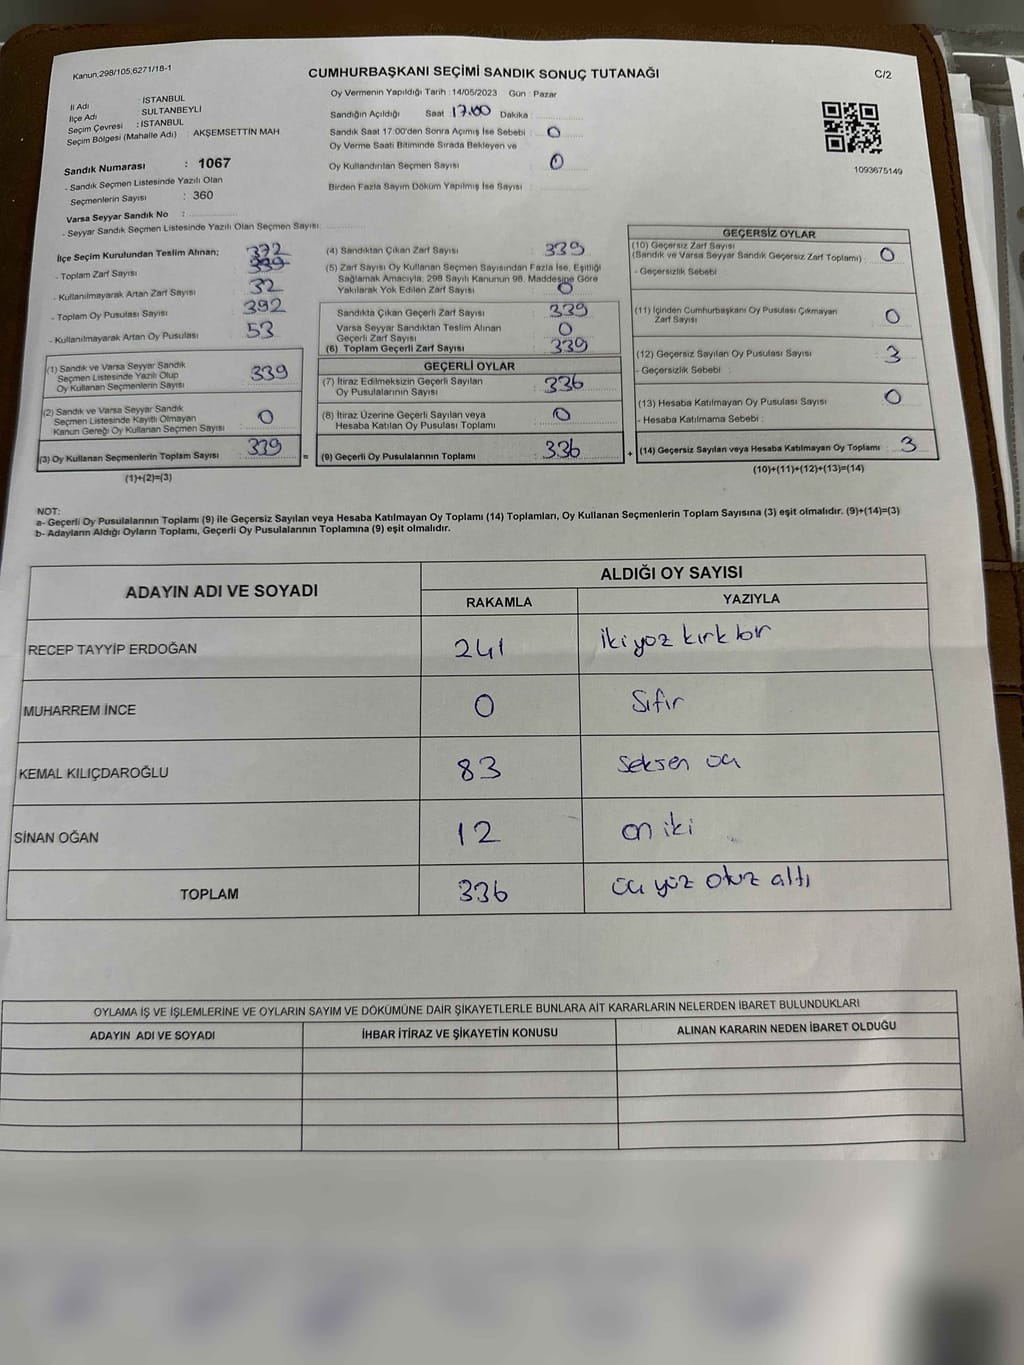 Kanun.298/105,6271/18-1
CUMHURBAŞKANI SEÇİMİ SANDIK SONUÇ TUTANAĞI
C/2
İl Adı : İSTANBUL
İlçe Adı : SULTANBEYLİ
Seçim Çevresi : İSTANBUL
Seçim Bölgesi (Mahalle Adı) : AKŞEMSETTİN MAH
Sandık Numarası : 1067
- Sandık Seçmen Listesinde Yazılı Olan
Seçmenlerin Sayısı : 360
Varsa Seyyar Sandık No :
- Seyyar Sandık Seçmen Listesinde Yazılı Olan Seçmen Sayısı
Oy Vermenin Yapıldığı Tarih : 14/05/2023 Gün : Pazar
Sandığın Açıldığı Saat 17.00 Dakika :
Sandık Saat 17:00'den Sonra Açımış İse Sebebi : 0
Oy Verme Saati Bitiminde Sırada Bekleyen ve
Oy Kullandırılan Seçmen Sayısı : 0
Birden Fazla Sayım Döküm Yapılmış İse Sayısı :
1093675149
İlçe Seçim Kurulundan Teslim Alınan; 372
- Toplam Zarf Sayısı : 339
- Kullanılmayarak Artan Zarf Sayısı : 32
- Toplam Oy Pusulası Sayısı : 392
- Kullanılmayarak Artan Oy Pusulası : 53
(1) Sandık ve Varsa Seyyar Sandık
Seçmen Listesinde Yazılı Olup
Oy Kullanan Seçmenlerin Sayısı : 339
(2) Sandık ve Varsa Seyyar Sandık
Seçmen Listesinde Kayıtlı Olmayan
Kanun Gereği Oy Kullanan Seçmen Sayısı : 0
(3) Oy Kullanan Seçmenlerin Toplam Sayısı : 339
(1)+(2)=(3)
=
(4) Sandıktan Çıkan Zarf Sayısı : 339
(5) Zarf Sayısı Oy Kullanan Seçmen Sayısından Fazla İse, Eşitliği
Sağlamak Amacıyla, 298 Sayılı Kanunun 98. Maddesine Göre
Yakılarak Yok Edilen Zarf Sayısı : 0
Sandıkta Çıkan Geçerli Zarf Sayısı : 339
Varsa Seyyar Sandıktan Teslim Alınan
Geçerli Zarf Sayısı : 0
(6) Toplam Geçerli Zarf Sayısı : 339
GEÇERLİ OYLAR
(7) İtiraz Edilmeksizin Geçerli Sayılan
Oy Pusulalarının Sayısı : 336
(8) İtiraz Üzerine Geçerli Sayılan veya
Hesaba Katılan Oy Pusulası Toplamı : 0
(9) Geçerli Oy Pusulalarının Toplamı : 336
+
GEÇERSİZ OYLAR
(10) Geçersiz Zarf Sayısı
(Sandık ve Varsa Seyyar Sandık Geçersiz Zarf Toplamı) : 0
- Geçersizlik Sebebi
(11) İçinden Cumhurbaşkanı Oy Pusulası Çıkmayan
Zarf Sayısı : 0
(12) Geçersiz Sayılan Oy Pusulası Sayısı : 3
- Geçersizlik Sebebi :
(13) Hesaba Katılmayan Oy Pusulası Sayısı : 0
- Hesaba Katılmama Sebebi :
(14) Geçersiz Sayılan veya Hesaba Katılmayan Oy Toplamı : 3
(10)+(11)+(12)+(13)=(14)
NOT:
a- Geçerli Oy Pusulalarının Toplamı (9) ile Geçersiz Sayılan veya Hesaba Katılmayan Oy Toplamı (14) Toplamları, Oy Kullanan Seçmenlerin Toplam Sayısına (3) eşit olmalıdır. (9)+(14)=(3)
b- Adayların Aldığı Oyların Toplamı, Geçerli Oy Pusulalarının Toplamına (9) eşit olmalıdır.
ADAYIN ADI VE SOYADI
ALDIĞI OY SAYISI
RAKAMLA YAZIYLA
RECEP TAYYİP ERDOĞAN 241 iki yöz kırk bir
MUHARREM İNCE 0 Sıfır
KEMAL KILIÇDAROĞLU 83 Seksen üç
SİNAN OĞAN 12 on iki
TOPLAM 336 üç yüz otuz altı
OYLAMA İŞ VE İŞLEMLERİNE VE OYLARIN SAYIM VE DÖKÜMÜNE DAİR ŞİKAYETLERLE BUNLARA AİT KARARLARIN NELERDEN İBARET BULUNDUKLARI
ADAYIN ADI VE SOYADI İHBAR İTİRAZ VE ŞİKAYETİN KONUSU ALINAN KARARIN NEDEN İBARET OLDUĞU